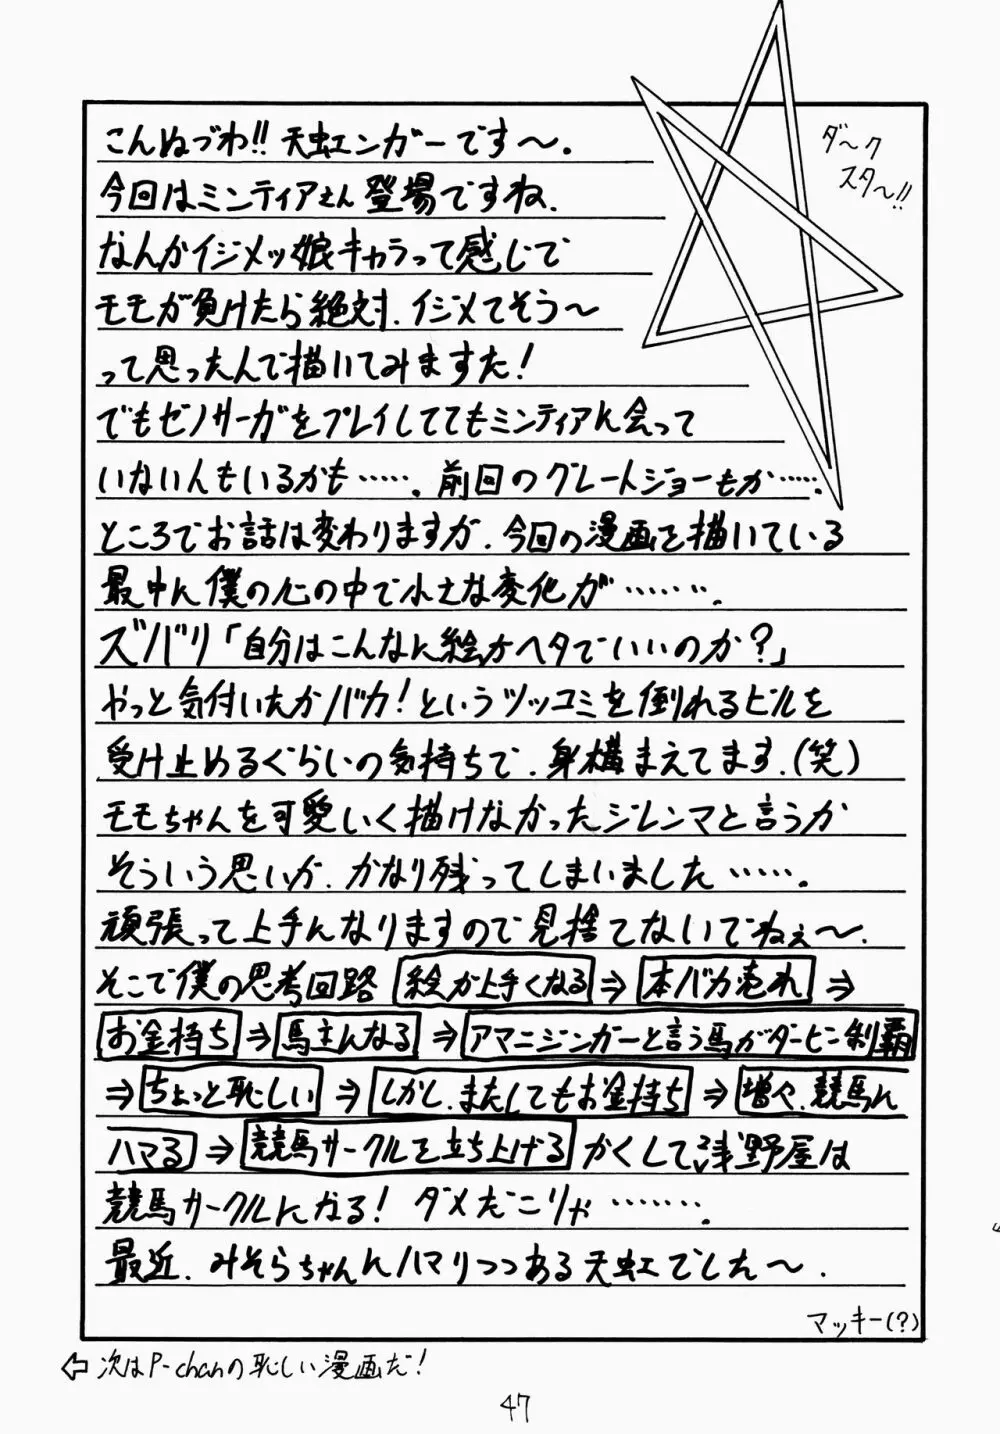 こんぬづわ!! 天虹エンガーです〜.
今回はミンティアさん登場ですね.
なんかイジメッ娘キャラって感じで
モモが負けたら絶対、イジメてそう〜
って思ったんで描いてみますた!
でもゼノサーガをプレイしててもミンティアに会って
いない人もいるかも……. 前回のグレートジョーもか…….
ところでお話は変わりますが、今回の漫画を描いている
最中に僕の心の中で小さな変化が…….
ズバリ「自分はこんなに絵がヘタでいいのか?」
やっと気付いたかバカ!というツッコミを倒れるビルを
受け止めるぐらいの気持ちで、身構まえてます.(笑)
モモちゃんを可愛いく描けなかったジレンマと言うか
そういう思いが、かなり残ってしまいました…….
頑張って上手になりますので見捨てないでねぇ〜.
そこで僕の思考回路 絵が上手くなる⇒本バカ売れ⇒
お金持ち⇒馬主になる⇒アマニジンガーと言う馬がダービー制覇
⇒ちょっと恥しい⇒しかし、またしてもお金持ち⇒増々、競馬に
ハマる⇒競馬サークルを立ち上げる かくして浅野屋は
競馬サークルになる! ダメだこりゃ…….
最近、みそらちゃんにハマりつつある天虹でした〜.
マッキー(?)
ダ〜ク
スタ〜!!
⇦ 次はP-chanの恥しい漫画だ!
47